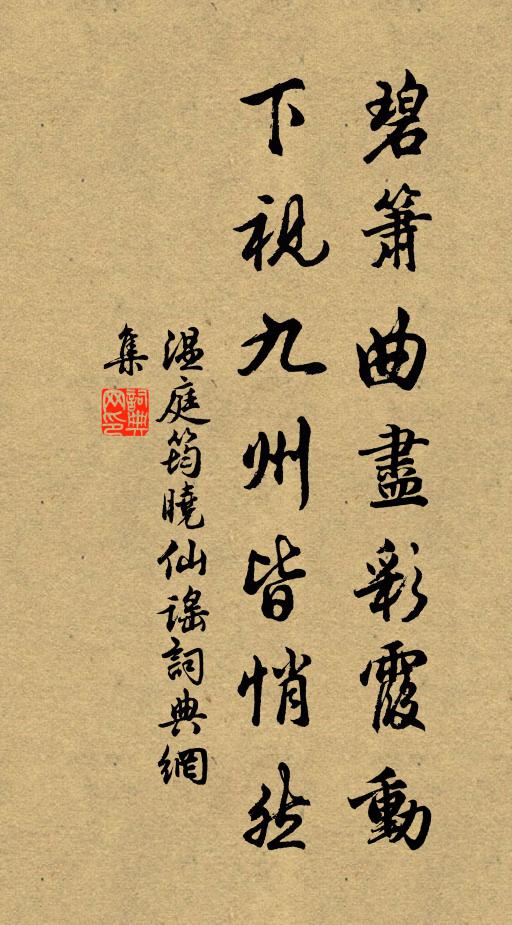 碧簫曲盡彩霞動
下視九州皆悄然
溫庭筠曉仙謠詞典網
集
詞典網印